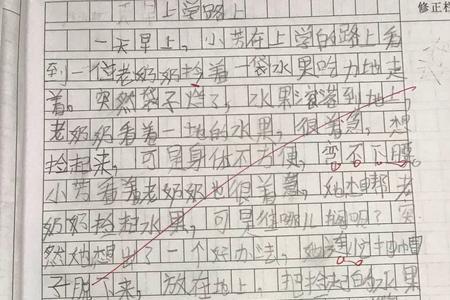 上学路上
修正栏
一天早上，小芳在上学的路上看
到一位老奶奶拎着一袋水果吃力地走
着。突然袋子烂了，水果滚落到地上，
老奶奶看着一地的水果，很着急，想
捡起来，可是身体不方便，弯不下腰
小芳看着老奶奶也很着急，她想帮老
奶奶捡起水果，可是往哪儿捡呢？突
然她想出了一个好办法，她连小把帽
子脱下来，放在地上，把捡起的水果